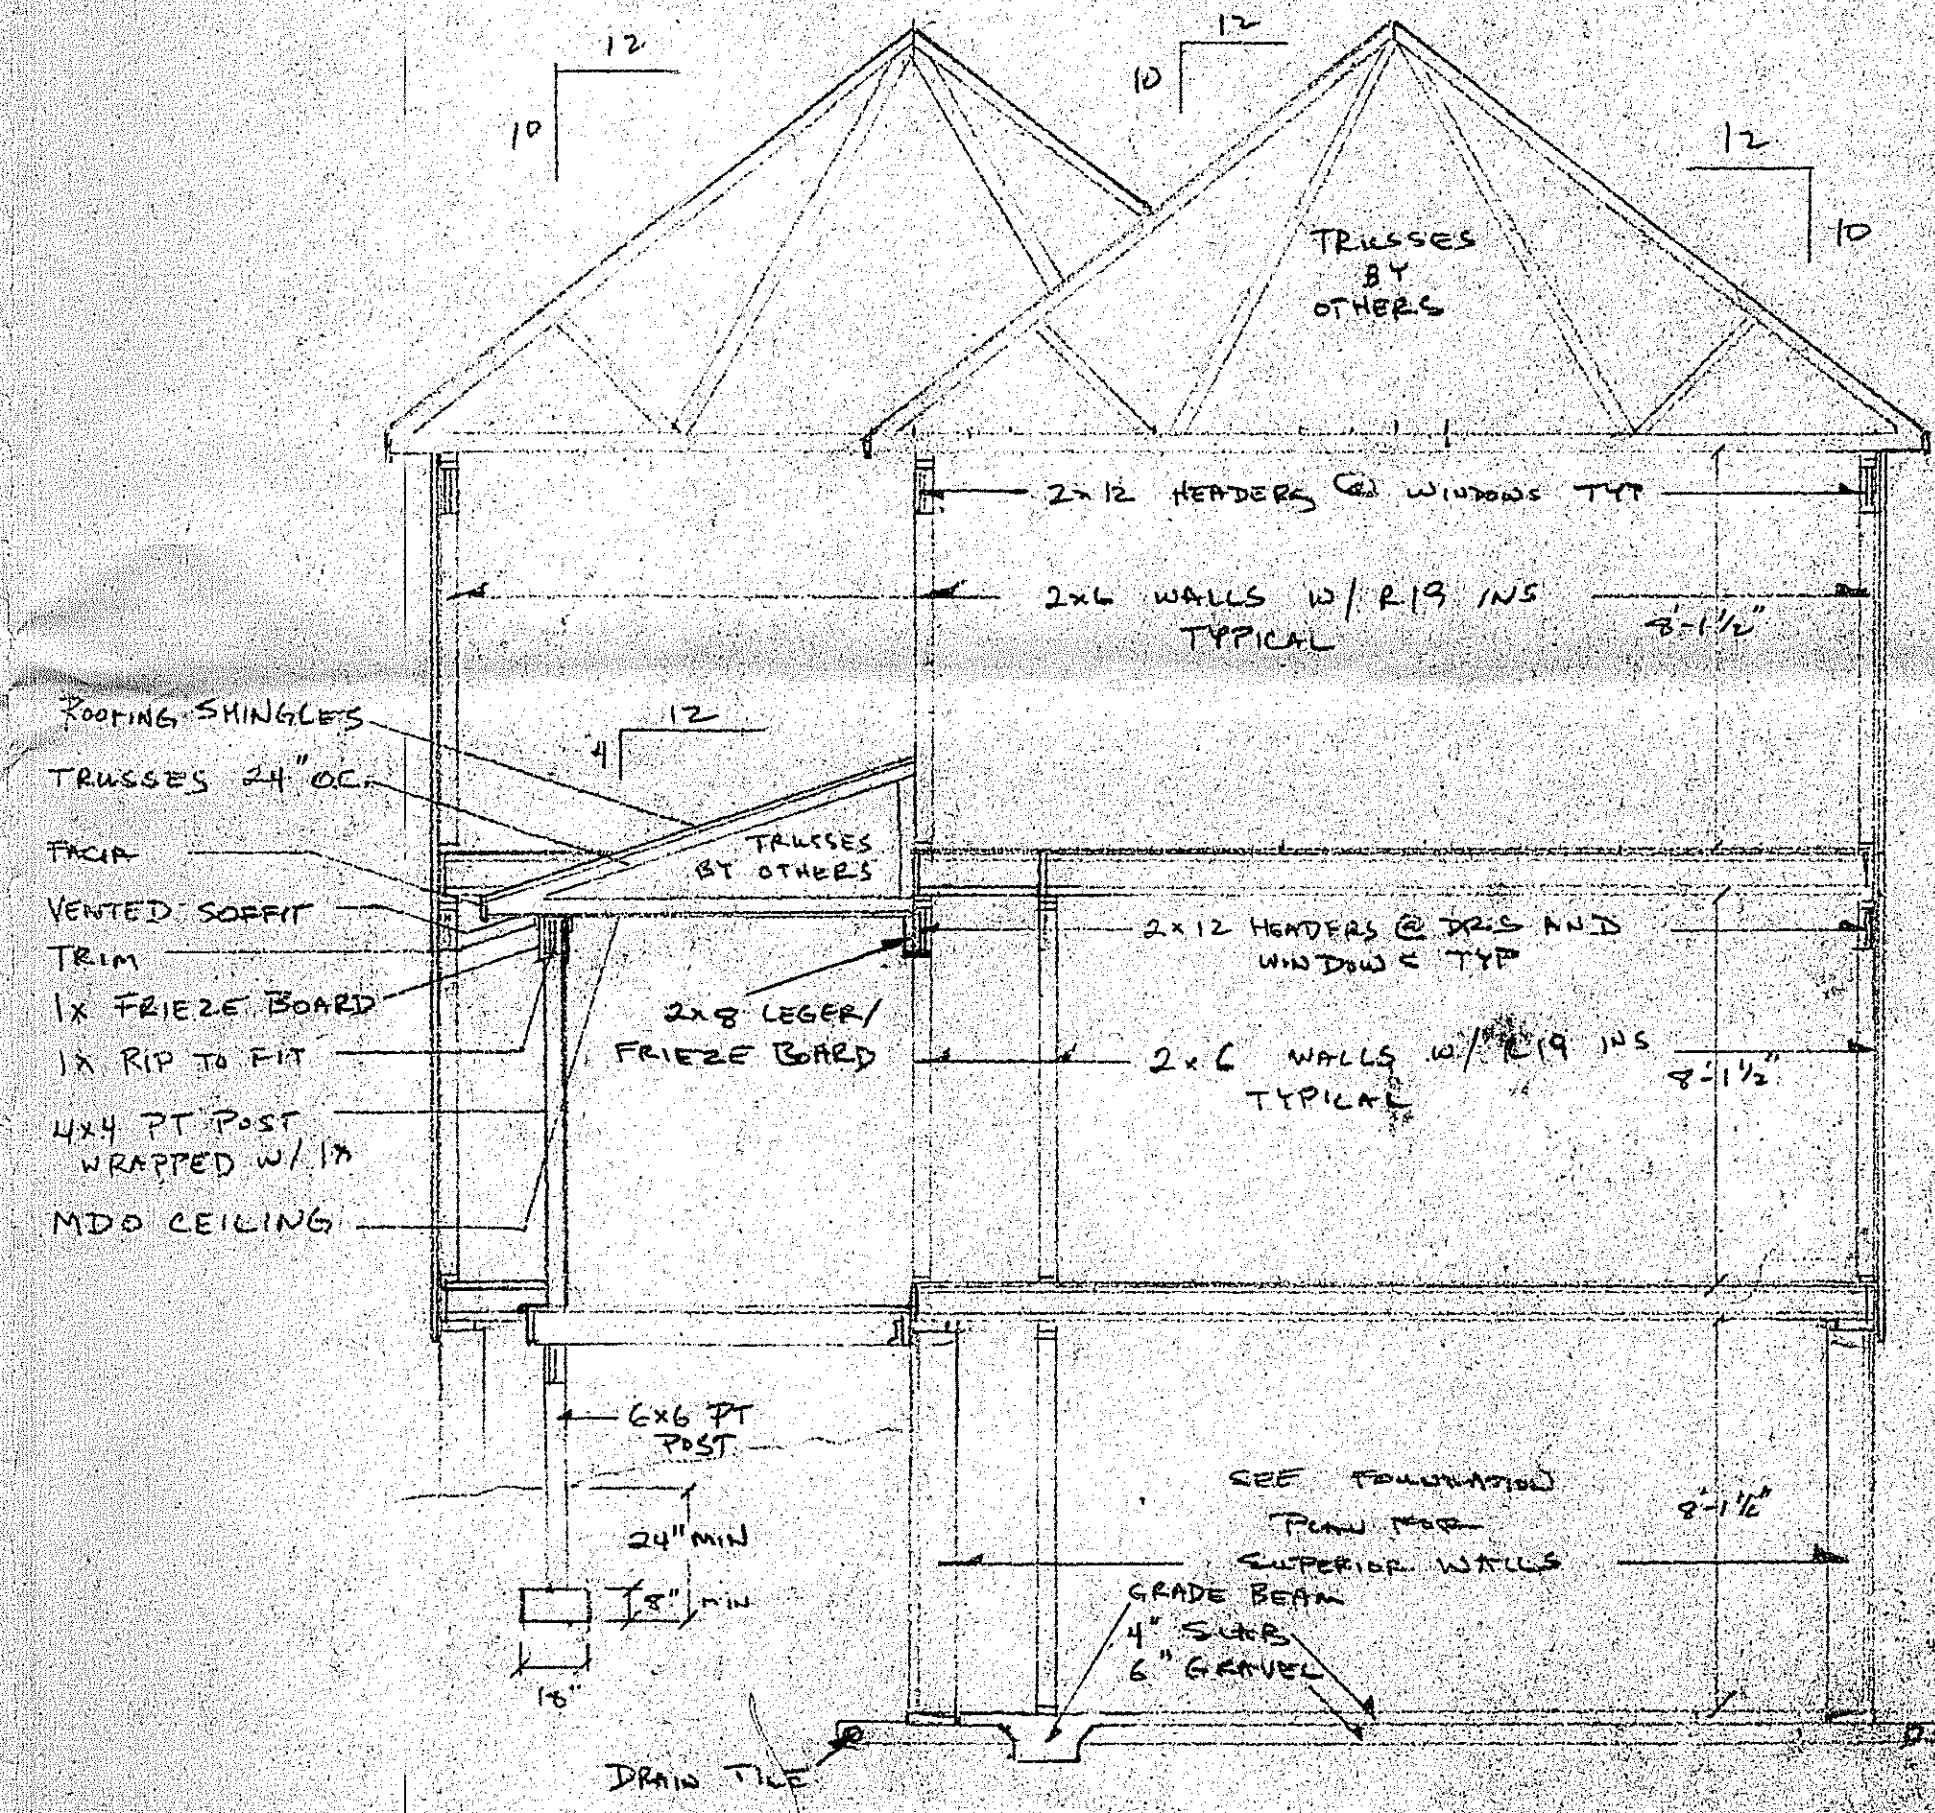 12
10
12
10
12
10
TRUSSES
BY
OTHERS
2x12 HEADERS @ WINDOWS TYP
2x6 WALLS W/ R19 INS
TYPICAL
8'-1 1/2"
ROOFING SHINGLES
12
4
TRUSSES 24" O.C.
TRUSSES
BY OTHERS
FACIA
VENTED SOFFIT
TRIM
1x FRIEZE BOARD
1x RIP TO FIT
4x4 PT POST
WRAPPED W/ 1x
MDO CEILING
2x12 HEADERS @ DR'S AND
WINDOWS TYP
2x8 LEGER/
FRIEZE BOARD
2x6 WALLS W/ R19 INS
TYPICAL
8'-1 1/2"
6x6 PT
POST
24" MIN
8" MIN
18"
SEE FOUNDATION
PLAN FOR
SUPERIOR WALLS
8'-1 1/2"
GRADE BEAM
4" SLAB
6" GRAVEL
DRAIN TILE